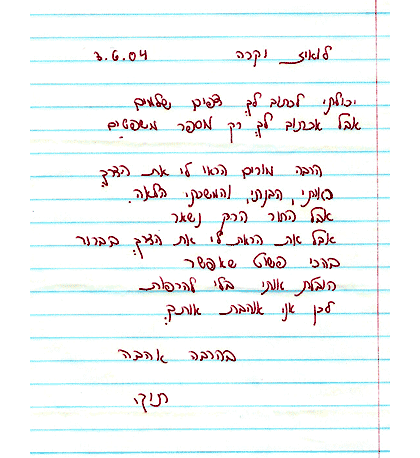 לואיז יקרה 3.6.04
יכולתי לכתוב לך דפים שלמים
אבל אכתוב לך רק מספר משפטים
הרבה מורים הראו לי את הדרך
ראיתי, הבנתי, והמשכתי הלאה.
אבל החור הרק נשאר
אבל את הראת לי את הדרך בברור
בהכי פשוט שאפשר
הובלת אותי בלי להרפות
לכן אני אוהבת אותך.
בהרבה אהבה
תוקי